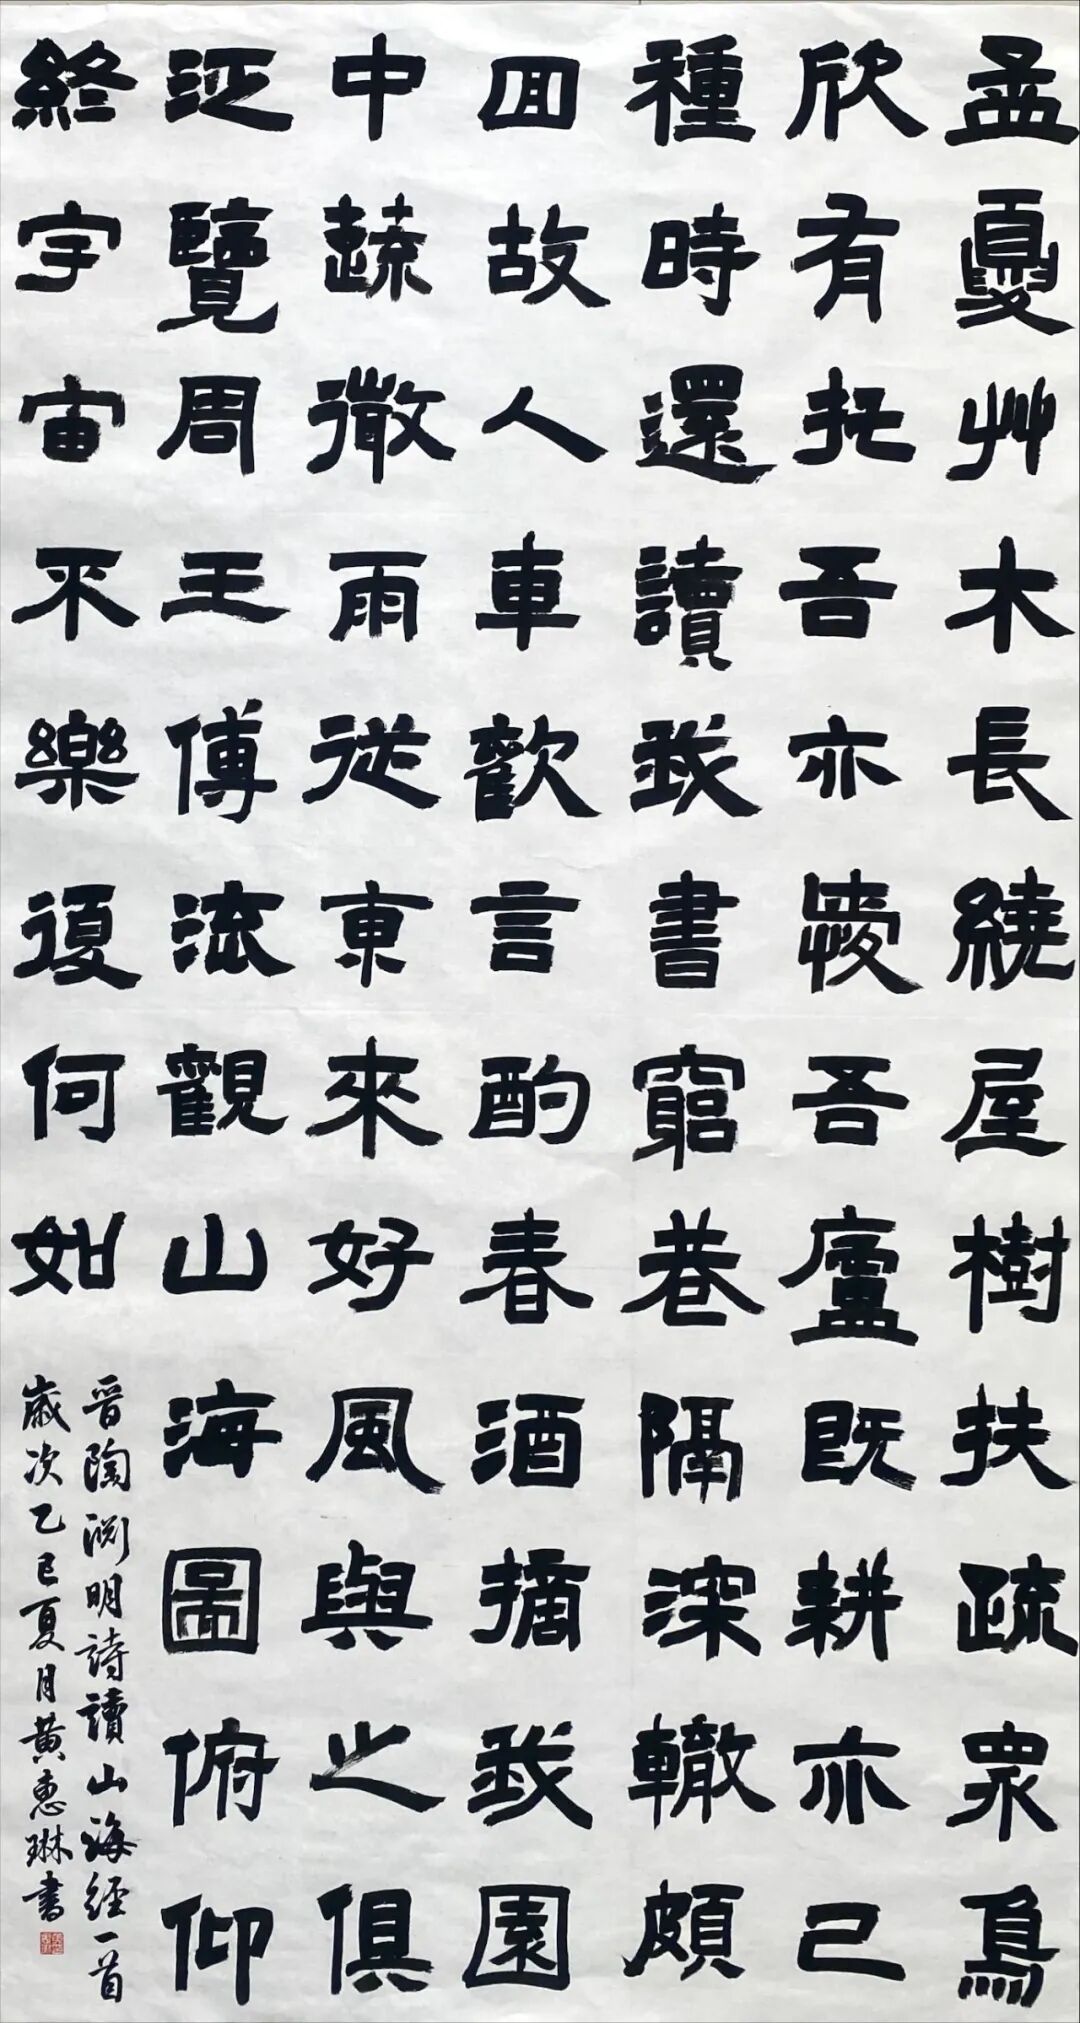 孟夏艸木長繞屋樹扶疏眾鳥
欣有托吾亦愛吾廬既耕亦已
種時還讀我書窮巷隔深轍頗
回故人車歡言酌春酒摘我園
中蔬微雨從東來好風與之俱
泛覽周王傅流觀山海圖俯仰
終宇宙不樂復何如
晋陶渊明詩讀山海經一首
歲次乙巳夏月黄惠琳書